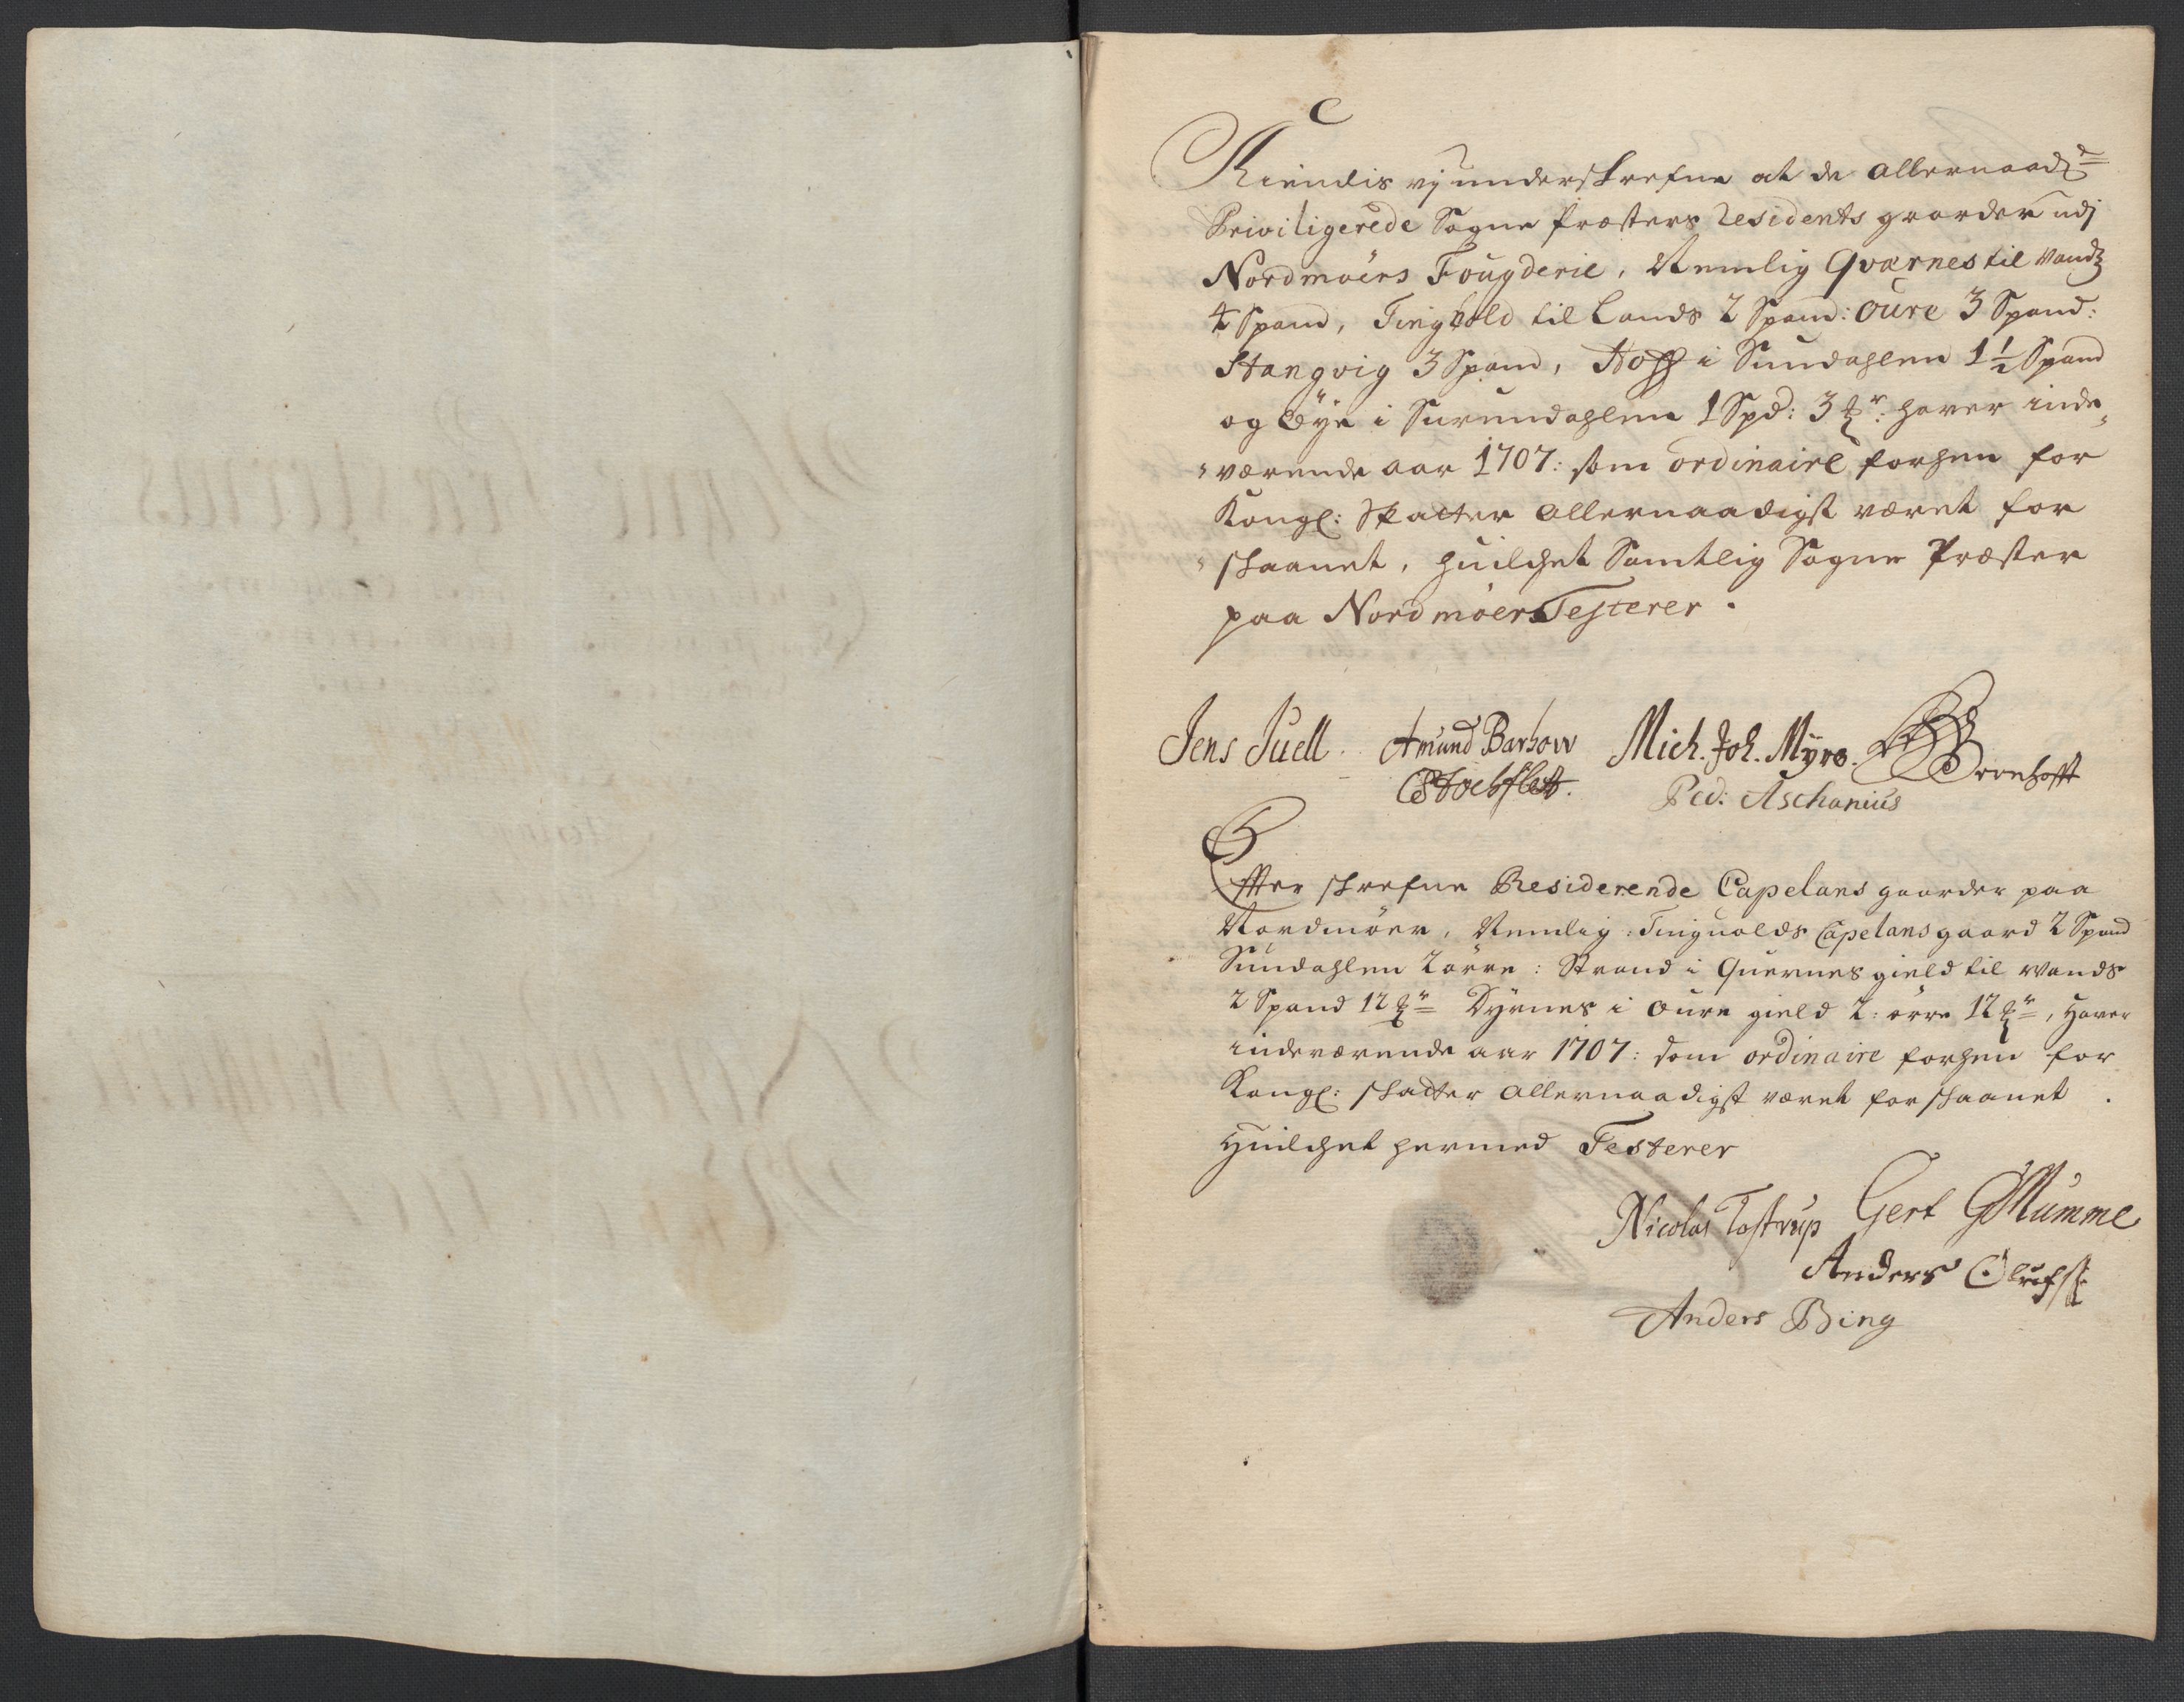 C
Kiendis vj underskrefne at de allernaadẽ
Priviligerede Sogne Præsters Residents gaarder udj
Nordmöers Fougderie, Nemlig Qværnes til Vandz
4 Spand, Tingvold til Lands 2 Spand: Oure 3 Spand:
Stangvig 3 Spand, Hoff i Sundahlen 1½ Spand
og Öye i Surendahlen 1 Spd: 3 ℔r: hafver inde,,
,,værende aar 1707: som ordinaire forhen for
Kongl: Skatter allernaadigst været for
,,skaanet, huilchet Samtlig Sogne Præster
paa Nordmöer Testerer.
Jens Juell. Amund Barhow Mich. Joh. Myre.
CStochfleth. Ped: Aschanius
Effter skrefne Residerende Capelans gaarder paa
Nordmöer, Nemlig: Tinguolds Capelans gaard 2 Spand
Sundahlen 2 örre: Strand i Quernes gield til Wands
2 Spand 12 ℔r Dyrnes i Oure gield 2: örre 12 ℔r, hafver
indeværende aar 1707: som ordinaire forhen for
Kongl: skatter allernaadigst været forskaanet.
Huilchet hermed Testerer
Nicolas Tostrup Gert GMumme
Anders Olufs
Anders Bing